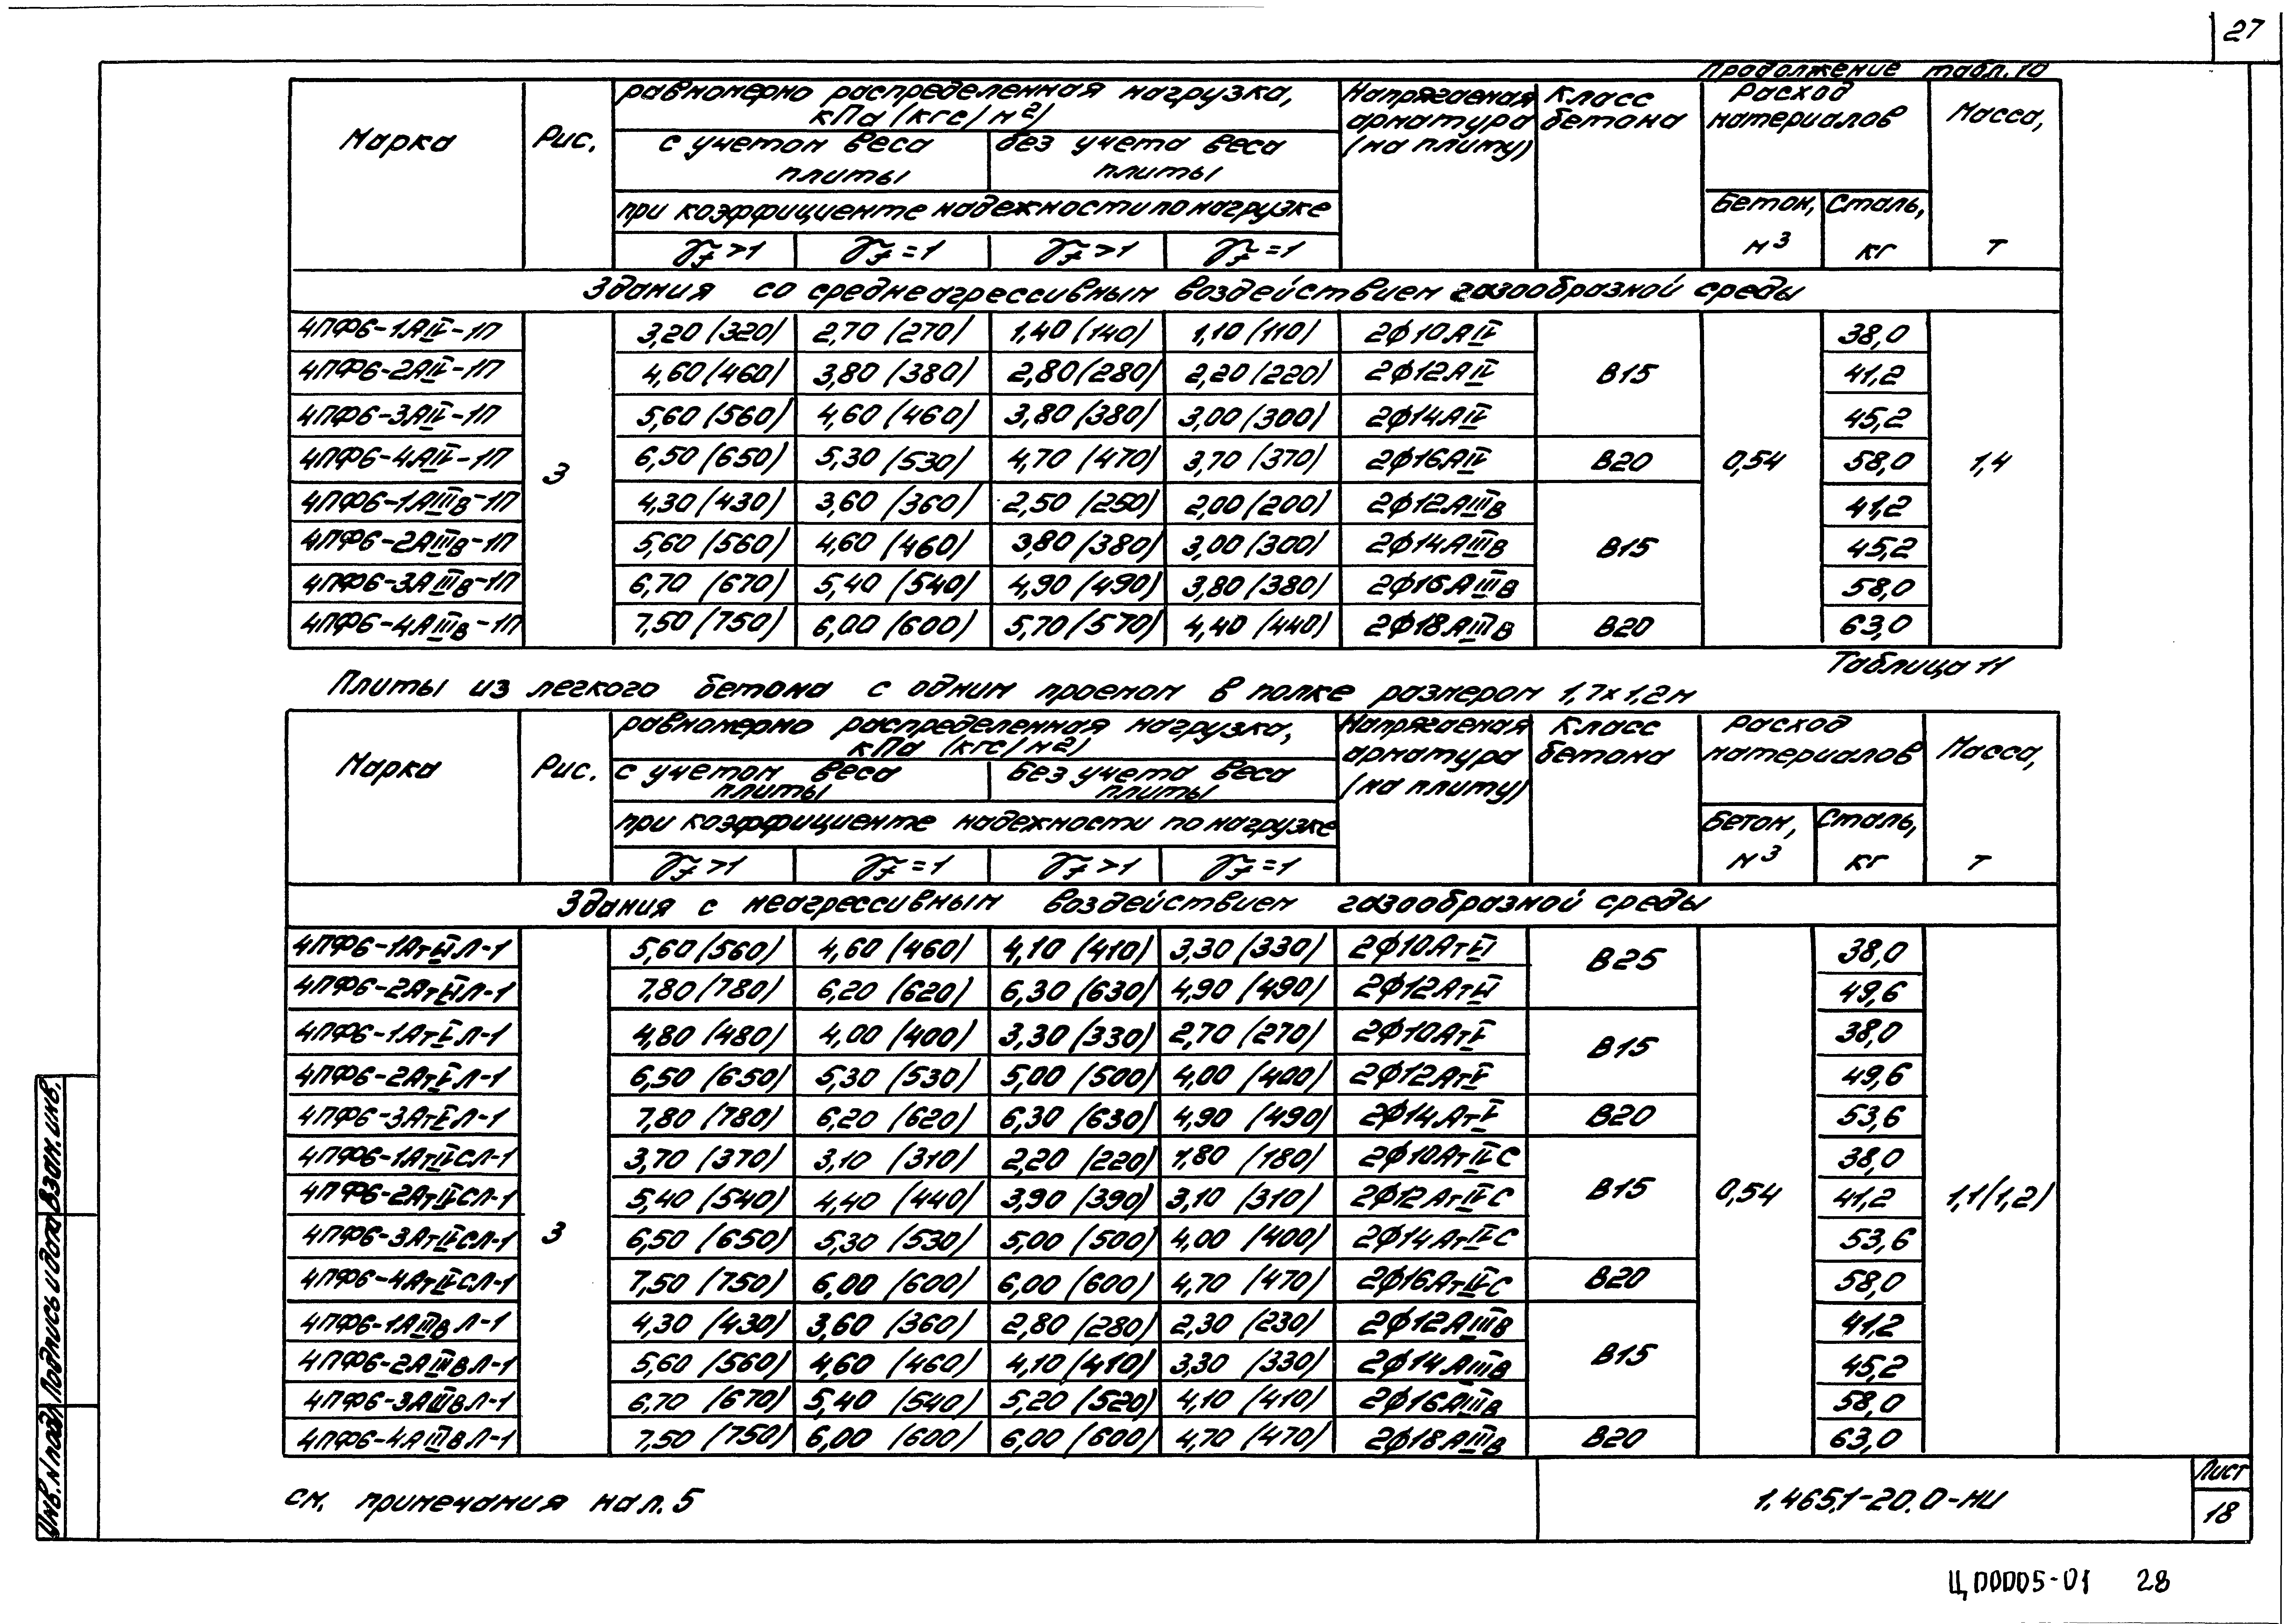 27
Продолжение табл. 10
Марка Рис. равномерно распределенная нагрузка, кПа (кгс/м²) Напрягаемая арматура (на плиту) Класс бетона Расход материалов Масса, т
с учетом веса плиты без учета веса плиты
при коэффициенте надежности по нагрузке Бетон, м³ Сталь, кг
γf >1 γf =1 γf >1 γf =1
Здания со среднеагрессивным воздействием газообразной среды
4ПФ6-1АIV-1П 3,20 (320) 2,70 (270) 1,40 (140) 1,10 (110) 2ф10АIV 38,0
4ПФ6-2АIV-1П 4,60 (460) 3,80 (380) 2,80 (280) 2,20 (220) 2ф12АIV В15 41,2
4ПФ6-3АIV-1П 5,60 (560) 4,60 (460) 3,80 (380) 3,00 (300) 2ф14АIV 45,2
4ПФ6-4АIV-1П 3 6,50 (650) 5,30 (530) 4,70 (470) 3,70 (370) 2ф16АIV В20 0,54 58,0 1,4
4ПФ6-1АIIIв-1П 4,30 (430) 3,60 (360) 2,50 (250) 2,00 (200) 2ф12АIIIв 41,2
4ПФ6-2АIIIв-1П 5,60 (560) 4,60 (460) 3,80 (380) 3,00 (300) 2ф14АIIIв В15 45,2
4ПФ6-3АIIIв-1П 6,70 (670) 5,40 (540) 4,90 (490) 3,80 (380) 2ф16АIIIв 58,0
4ПФ6-4АIIIв-1П 7,50 (750) 6,00 (600) 5,70 (570) 4,40 (440) 2ф18АIIIв В20 63,0
Таблица 11
Плиты из легкого бетона с одним проемом в полке размером 1,7х1,2м
Марка Рис. равномерно распределенная нагрузка, кПа (кгс/м²) Напрягаемая арматура (на плиту) Класс бетона Расход материалов Масса, т
с учетом веса плиты без учета веса плиты
при коэффициенте надежности по нагрузке Бетон, м³ Сталь, кг
γf >1 γf =1 γf >1 γf =1
Здания с неагрессивным воздействием газообразной среды
4ПФ6-1АтVIЛ-1 5,60 (560) 4,60 (460) 4,10 (410) 3,30 (330) 2ф10АтVI В25 38,0
4ПФ6-2АтVIЛ-1 7,80 (780) 6,20 (620) 6,30 (630) 4,90 (490) 2ф12АтVI 49,6
4ПФ6-1АтVЛ-1 4,80 (480) 4,00 (400) 3,30 (330) 2,70 (270) 2ф10АтV В15 38,0
4ПФ6-2АтVЛ-1 6,50 (650) 5,30 (530) 5,00 (500) 4,00 (400) 2ф12АтV 49,6
4ПФ6-3АтVЛ-1 7,80 (780) 6,20 (620) 6,30 (630) 4,90 (490) 2ф14АтV В20 53,6
4ПФ6-1АтIVСЛ-1 3,70 (370) 3,10 (310) 2,20 (220) 1,80 (180) 2ф10АтIVС 38,0
4ПФ6-2АтIVСЛ-1 5,40 (540) 4,40 (440) 3,90 (390) 3,10 (310) 2ф12АтIVС В15 0,54 41,2 1,1(1,2)
4ПФ6-3АтIVСЛ-1 3 6,50 (650) 5,30 (530) 5,00 (500) 4,00 (400) 2ф14АтIVС 53,6
4ПФ6-4АтIVСЛ-1 7,50 (750) 6,00 (600) 6,00 (600) 4,70 (470) 2ф16АтIVС В20 58,0
4ПФ6-1АIIIвЛ-1 4,30 (430) 3,60 (360) 2,80 (280) 2,30 (230) 2ф12АIIIв 41,2
4ПФ6-2АIIIвЛ-1 5,60 (560) 4,60 (460) 4,10 (410) 3,30 (330) 2ф14АIIIв В15 45,2
4ПФ6-3АIIIвЛ-1 6,70 (670) 5,40 (540) 5,20 (520) 4,10 (410) 2ф16АIIIв 58,0
4ПФ6-4АIIIвЛ-1 7,50 (750) 6,00 (600) 6,00 (600) 4,70 (470) 2ф18АIIIв В20 63,0
см. примечания на л. 5
1.465.1-20.0-НИ
Лист
18
Инв. N подл. Подпись и дата Взам. инв.
Ц00005-01 28